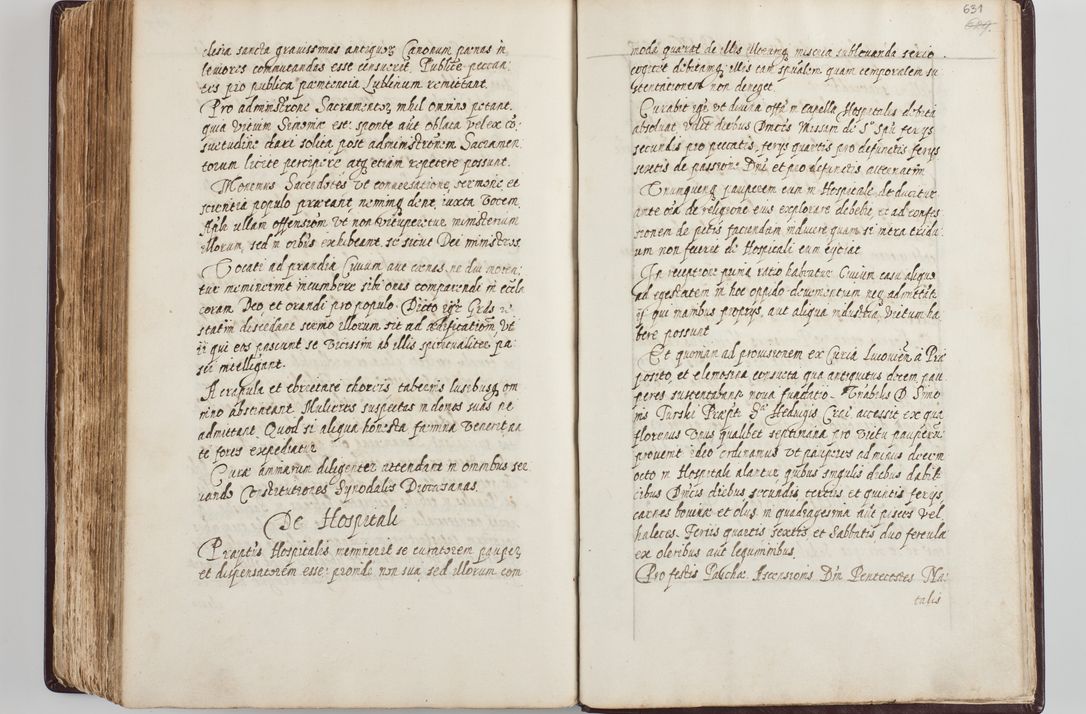 clesia sancta gravissimas antiquorz Canonum pœnas in
leviores commutandas esse censuerit. Publicè peccan
tes pro publica pœnitentia Lublinum remittant.
Pro administrone Sacramentorz nihil omnino petant,
quia vitium Simoniæ est: sponte aut oblata vel ex cō,
suetudine dari solita post administrõnem Sacramen
torum licitè percipere atqz etiam repetere possunt.
Monemus Sacerdotes ut conversatione, sermone, et
scientiâ populo præeant, nemini dent, iuxta vocem
Apli ullam offensiom ut non vituperetur ministerium
illorum, sed in orbus exhibeant se sicut Dei ministros.
Vocati ad prandia Civium aut cœnas, ne diu moren:
tur meminerint incumbere sibi onus comparendi in eccla
coram Deo et orandi pro populo. Dicto igr Grās
statim discedant sermo illorum sit ad ædificatiom ut
ii qui eos pascunt se vicissim ab illis spiritualiter pa:
sci intelligant.
A crapula et ebrietate choreis tabernis lusibusq om
nino abstineant. Mulieres suspectas in domos suas ne
admittant. Quod si aliqua honesta fœmina venerit an
te fores expediatur
Curæ animarum diligenter attendant in omnibus ser
vando Constitutiones Synodales Dioecesanas.
De Hospitali
Præptus Hospitalis meminerit se curatorem pauperz
et dispensatorem esse: proinde non sua, sed illorum com
631
moda quærat de illis illorumq miseria sublevanda serio
cogitet debitamq illis tam spualem quam temporalem su
stentationem non deneget.
Curabit igr ut divina offa in capella Hospitalis debitè
absolvat, vidlt diebus Dnicis Missam de S. Spū ferijs
secundis pro peccatis, ferijs quartis pro defunctis ferijs
sextis de passione Dni et pro defunctis alternatim
Unumquemq pauperem cum in Hospitale deducitur
ante oīa de religione eius explorare debebit, et ad confes
sionem de pctis faciendam inducere quam si intra tridu
um non fuerit de Hospitali eum ejiciat
In receptione prima ratio habeatur Civium casu aliquo
ad egestatem in hoc oppido devenientum neq admittat
ij qui manibus proprijs, aut aliqua industria victum ha
bere possunt
Et quoniam ad provisionem ex Curia à Præ
posito, et elemosina consueta qua antiquitus decem pau
peres sustentabant nova fundatio Vnrabilis D Simo
nis Turski Præpti Hedvigis Crac. accessit ex qua
florenus unus qualibet septimana pro victu pauperum
provenit ideo ordinamus ut pauperes ad minus decem
octo in Hospitali alantur, quibus singulis diebus dabit
cibus Dnicis diebus secundis, tertijs et quintis ferijs,
carnes bovinæ et olus in quadragesima aut pisces vel
haleces. Ferijs quartis sextis et Sabbatis duo fercula
ex oleribus aut leguminibus.
Pro festis Paschæ Ascensionis Dni Pentecostes Na:
talis